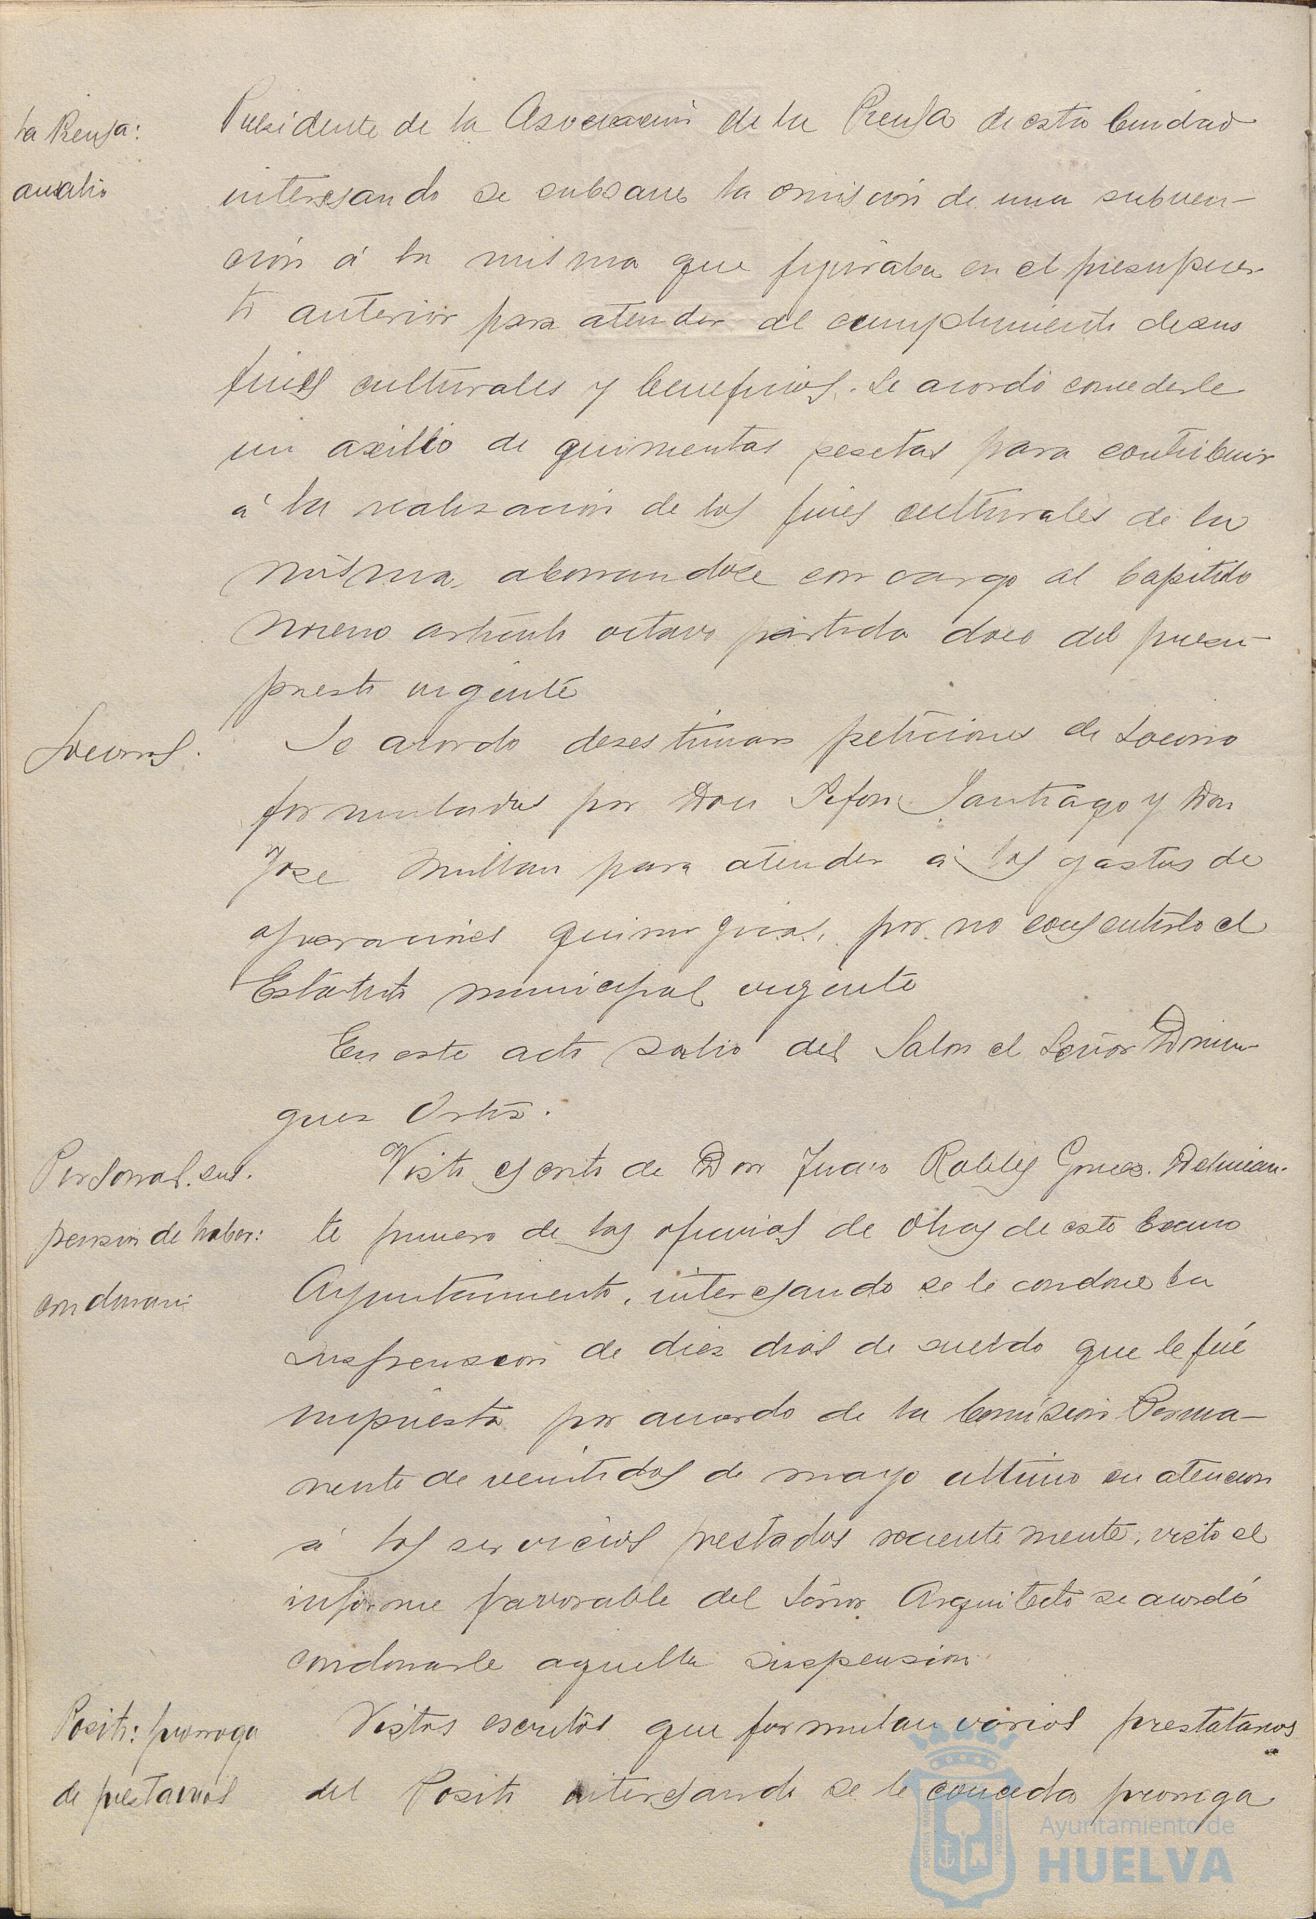 La Prensa:
auxilio
Presidente de la Asociacion de la Prensa de esta Ciudad
interesando se subsane la omisión de una subven-
ción á la misma que figuraba en el presupues-
to anterior para atender al cumplimiento de sus
fines culturales y beneficios. Se acordó concederle
un axilio de quinientas pesetas para contribuir
á la realizacion de los fines culturales de la
misma abonandose con cargo al Capitulo
noveno articulo octavo partida doce del presu-
puesto vigente
Socorros.
Se acordo desestimar peticiones de socorro
formuladas por Don Santiago y Don
Jose Millan para atender á los gastos de
operaciones quirurgicas, por no consentirlo el
Estatuto municipal vigente
En este acto salio del Salon el Señor Domin-
guez Ortiz.
Personal. sus-
pension de haber:
condonacion
Visto escrito de Don Juan Robles Gomez. Delinean-
te primero de las oficinas de Obras de este Excmo
Ayuntamiento, interesando se le condone la
suspension de diez dias de sueldo que le fué
impuesta por acuerdo de la Comision Perma-
nente de veintidos de mayo ultimo en atencion
á los servicios prestados recientemente, visto el
informe favorable del Señor Arquitecto se acordó
condonarle aquella suspension
Posito: prorroga
de prestamos
Vistos escritos que formulan varios prestatarios
del Posito interesando se le conceda prorroga
Ayuntamiento de
HUELVA